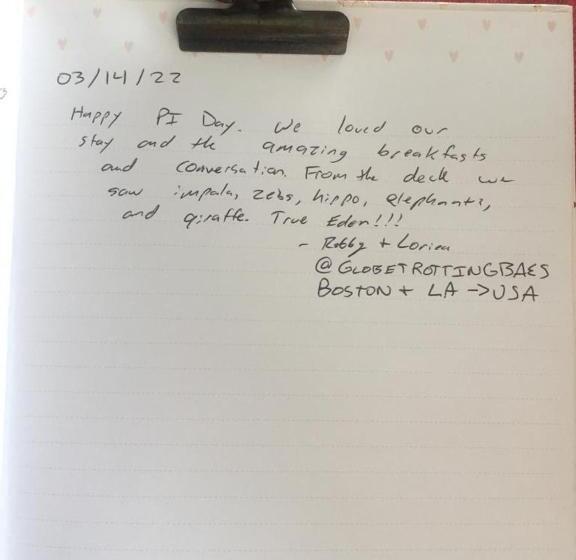 03/14/22
Happy PI Day. We loved our
stay and the amazing breakfasts
and conversation. From the deck we
saw impala, zebs, hippo, elephants,
and giraffe. True Eden!!!
- Robby + Loriea
@GLOBETROTTINGBAES
BOSTON + LA →USA